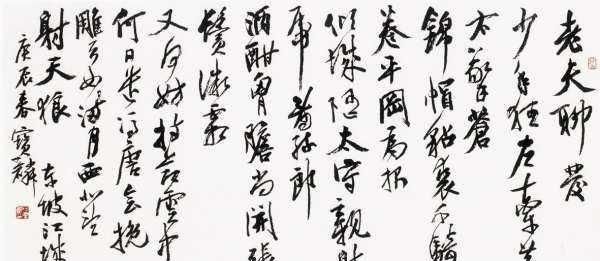 老夫聊发
少年狂左牵黄
右擎苍
锦帽貂裘千骑
卷平冈为报
倾城随太守亲射
虎看孙郎
酒酣胸胆尚开张
鬓微霜
又何妨持节云中
何日遣冯唐会挽
雕弓如满月西北望
射天狼 东坡江城
庚辰春宝麟